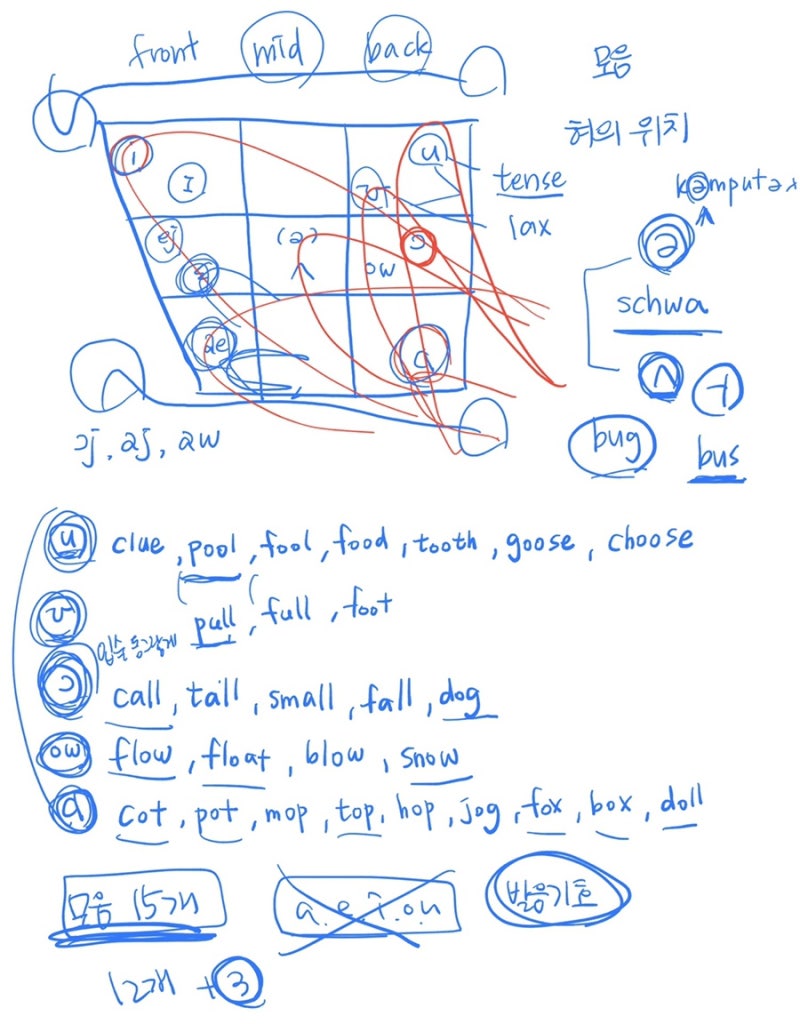 front mid back
모음
혀의 위치
i
I
u
ʊ
tense
lax
kəmputəɹ
ej
ɛ
(ə)
ʌ
ɔ
ow
ə
schwa
æ
a
ʌ ㅓ
ɔj, aj, aw
bug bus
u clue, pool, fool, food, tooth, goose, choose
ʊ pull, full, foot
입술 동그랗게
ɔ call, tall, small, fall, dog
ow flow, float, blow, snow
a cot, pot, mop, top, hop, jog, fox, box, doll
모음 15개 a.e.i.o.u 발음기호
12개 + 3